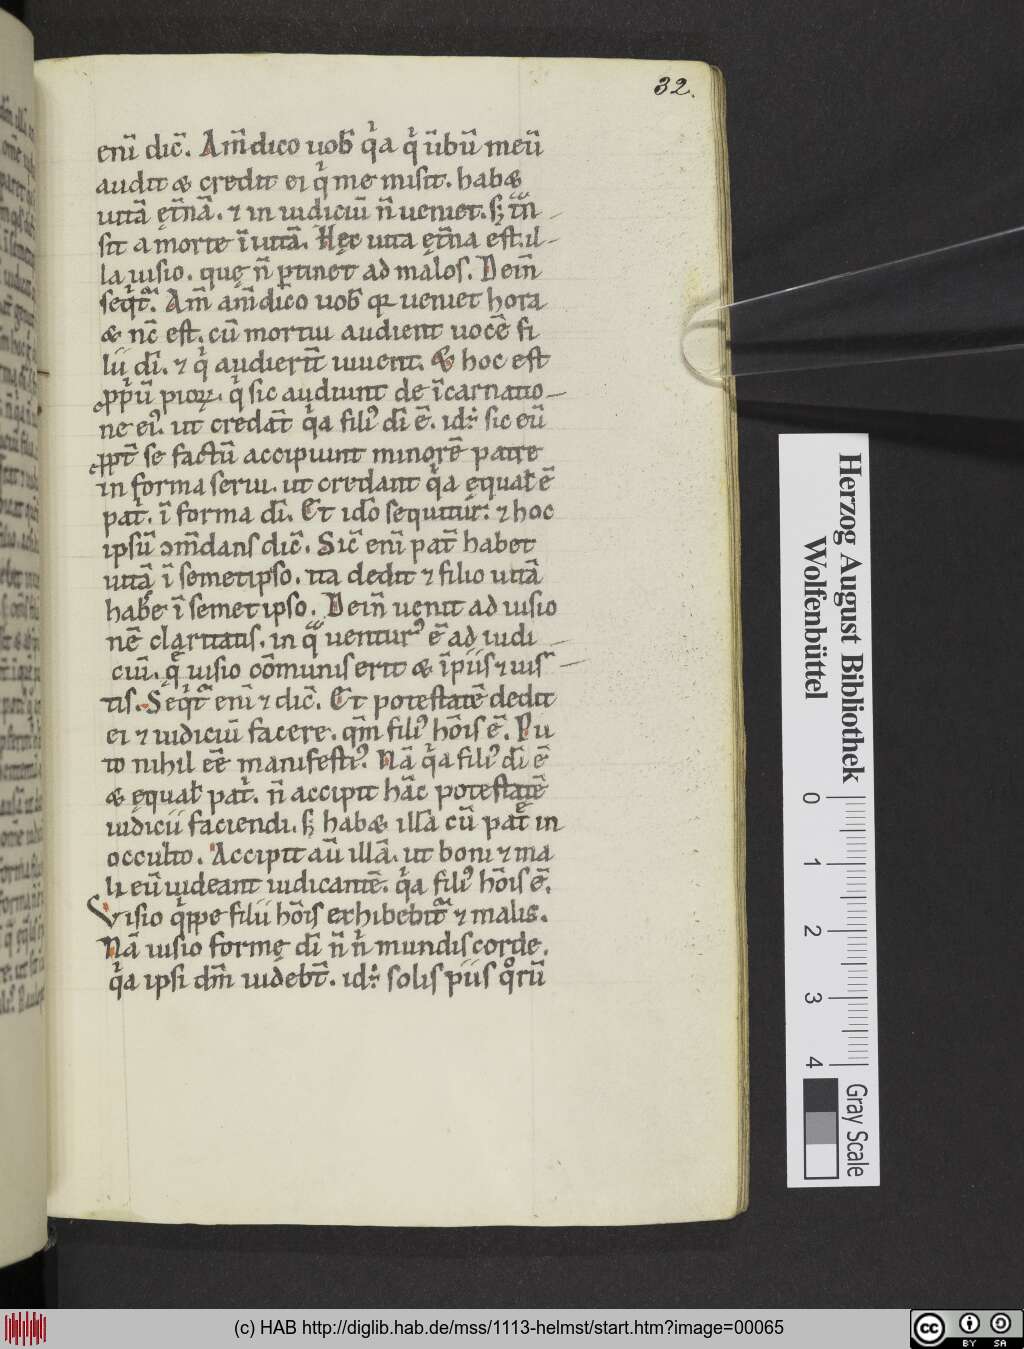 32.
enī dic̄. Am̄ dico uob̄ qͥa qͥ ūbū meū
audit & credit ei qͥ me misit. hab&
uitā ęt̄nā. ⁊ in iudiciū n̄ ueniet. s; t̄n
sit a morte ī uitā. Hęc uita ęt̄na est. il-
la uisio. quę n̄ ptinet ad malos. Dein̄
seqͥtᷓ. Am̄ am̄ dico uob̄ qꝛ ueniet hora
& nc̄ est. cū mortui audient uocē fi
lii dī. ⁊ qͥ audierīt uiuent. & hoc est
ꝓpͥū pioꝝ. qͥ sic audiunt de īcarnatio-
ne eiꝰ. ut credāt qͥa filiꝰ dī ē. id; sic eū
ꝓpt̄ se factū accipiunt minorē patre
in forma serui. ut credant qͥa ęqual ē
pat̄. ī forma dī. Et idō sequitur. ⁊ hoc
ipsū ↄm̄dans dic̄. Sic̄ enī pat̄ habet
uitā ī semetipso. ita dedit ⁊ filio uitā
habe ī semetipso. Dein̄ uenit ad uisio
nē claritatis. in qᷓ uenturꝰ ē ad iudi
ciū. qͤ uisio cōmunis erit & īpiis ⁊ iuis
tis. Seqͥtᷓ enī ⁊ dic̄. Et potestatē dedit
ei ⁊ iudiciū facere. qm̄ filiꝰ hōis ē. Pu
to nihil eē manifestiꝰ. Nā qͥa filiꝰ dī ē
& ęqual pat̄. n̄ accipit hāc potestatē
iudicii faciendi. s; hab& illā cū patͤ in
occulto. Accipit aū illā. ut boni ⁊ ma
li eū uideant iudicantē. qͥa filiꝰ hōis ē.
Visio qͥppe filii hōis exhibebitᷓ ⁊ malis.
Nā uisio formę dī n̄ nͥ mundis corde.
qͥa ipsi dm̄ uidebt̄. id; solis piis qͦrū
Herzog August Bibliothek
Wolfenbüttel
0 1 2 3 4
Gray Scale
(c) HAB http://diglib.hab.de/mss/1113-helmst/start.htm?image=00065
cc BY SA